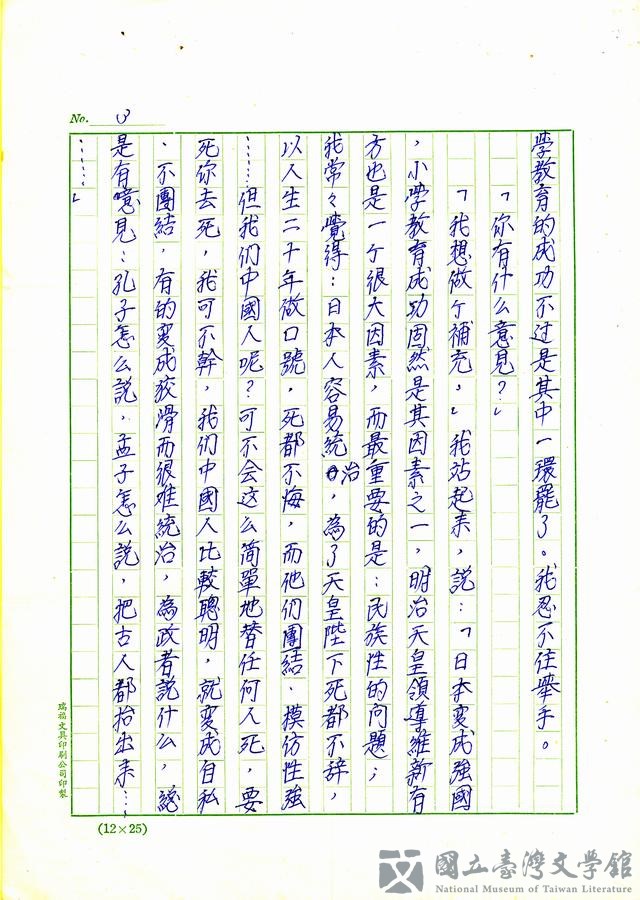 No. 3
學教育的成功不过是其中一環罷了。我忍不住舉手。
「你有什么意見?」
「我想做个補充,」我站起来,說:「日本变成強國
,小學教育成功固然是其因素之一,明治天皇領導維新有
方也是一个很大因素,而最重要的是:民族性的问題;
我常々覺得:日本人容易統治,為了天皇陛下死都不辞,
以人生二十年做口號,死都不悔,而他们團結.模仿性強
……但我们中國人呢?可不会这么简單地替任何人死,要
死你去死,我可不幹,我们中國人比較聰明,就变成自私
.不團結,有的变成狡滑而很难統治,為政者說什么,總
是有意見:孔子怎么說,孟子怎么說,把古人都抬出来…
……」
(12×25)
瑞福文具印刷公司印製
國立臺灣文學館
National Museum of Taiwan Literature